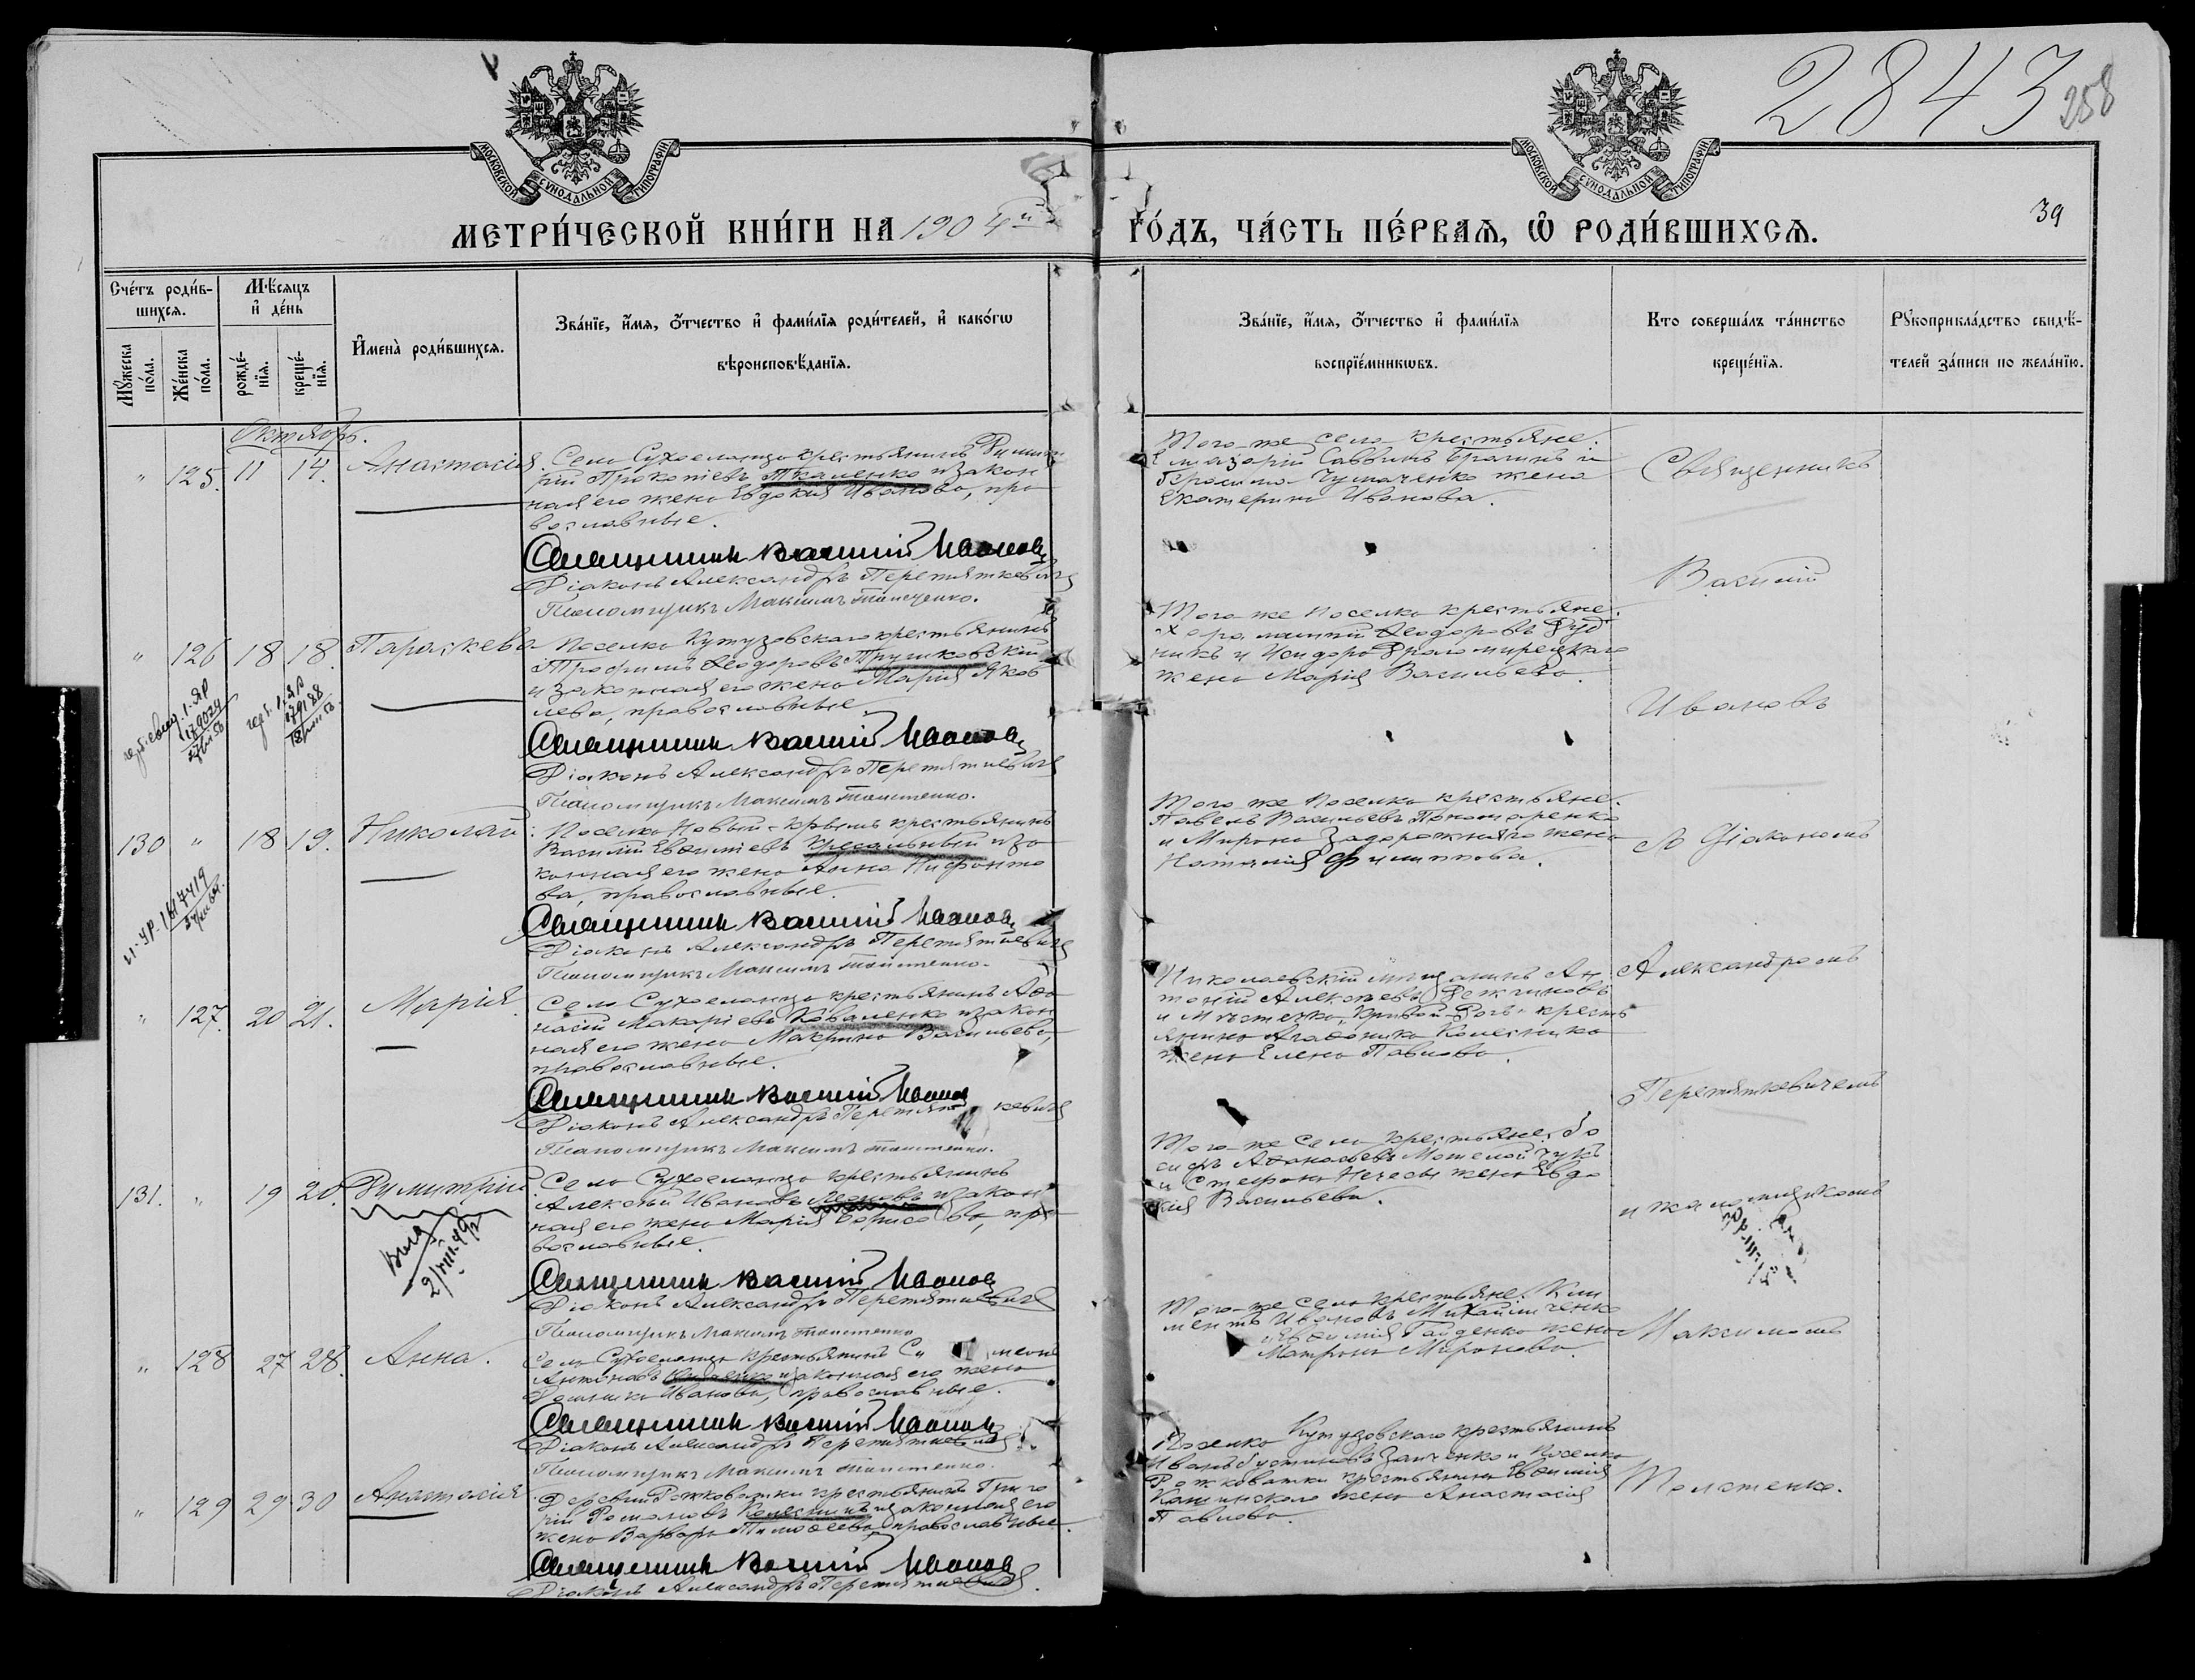 2843
258
МОСКОВСКОЙ СУНОДАЛЬНОЙ ТИПОГРАФІИ
МОСКОВСКОЙ СУНОДАЛЬНОЙ ТИПОГРАФІИ
МЕТРИ́ЧЕСКОЙ КНИ́ГИ НА 1904й
ГО́ДЪ, ЧА́СТЬ ПЕ́РВАѦ, Ѡ҆ РОДИ́ВШИХСѦ.
39
Сче́тъ роди́в-
шихсѧ.
Мꙋ́жеска по́ла.
Же́нска по́ла.
Мѣ́сѧцъ
и҆ де́нь
рожде́-нїѧ.
креще́-нїѧ.
И҆мена̀ роди́вшихсѧ.
Зва́нїе, и҆́мѧ, ѻ҆́тчество и҆ фами́лїѧ роди́телей, и҆ како́гѡ
вѣроисповѣ́данїѧ.
Зва́нїе, и҆́мѧ, ѻ҆́тчество и҆ фами́лїѧ
воспрїе́мникѡвъ.
Кто соверша́лъ та́инство
креще́нїѧ.
Рꙋкоприкла́дство свидѣ́-
телей за́писи по жела́нїю.
Октябрь.
" 125. 11 14. Анастасія.
Села Сухоеланца крестьянинъ Димит
рій Прокопіевъ Ткаленко и закон
ная его жена Евдокія Иванова, пра
вославные.
Священникъ Василій Ивановъ
Діаконъ Александръ Перетяткевичъ
Псаломщикъ Максимъ Толстенко.
Того-же села крестьяне.
Саввинъ и
Герасима Чумаченко жена
Екатерина Иванова.
" 126 18 18. Параскева
Поселка Кутузовскаго крестьянинъ
Трофимъ Ѳеодоровъ Трушковскій
и законная его жена Марія Яков
лева, православные
Священникъ Василій Ивановъ
Діаконъ Александръ Перетяткевичъ
Псаломщикъ Максимъ Толстенко.
Того же поселка крестьяне.
Ѳеодоровъ Руд
никъ и Исидора Драгомирецкаго
жена Марія Васильева.
130 " 18 19. Николай
Поселка Новый-Крымъ крестьянинъ
Василій Евѳиміевъ и за
конная его жена Анна Нифонто
ва, православные.
Священникъ Василій Ивановъ
Діаконъ Александръ Перетяткевичъ
Псаломщикъ Максимъ Толстенко.
Того же поселка крестьяне.
Павелъ Васильевъ Пономаренко
и Мирона Задорожняго жена
Наталія Филиппова.
" 127. 20 21. Марія.
Села Сухоеланца крестьянинъ Аѳа
насій Макаріевъ Коваленко и закон
ная его жена Макрина Васильева,
православные.
Священникъ Василій Ивановъ
Діаконъ Александръ Перетяткевичъ
Псаломщикъ Максимъ Толстенко.
Николаевскій мѣщанинъ Ан
тоній Алексѣевъ
и Мѣстечка Кривой-Рогъ кресть
янина Колесника
жена Елена Павлова.
131. " 19 20. Димитрій
Села Сухоеланца крестьянинъ
Алексѣй Ивановъ и закон
ная его жена Марія Борисова, пра
вославные.
Священникъ Василій Ивановъ
Діаконъ Александръ Перетяткевичъ
Псаломщикъ Максимъ Толстенко
Того-же села крестьяне:
Аѳанасьевъ
и Стефана Нечесы жена Евдо
кія Васильева.
" 128 27 28. Анна.
Села Сухоеланца крестьянинъ
Антоновъ и законная его жена
Домника Иванова, православные.
Священникъ Василій Ивановъ
Діаконъ Александръ Перетяткевичъ
Псаломщикъ Максимъ Толстенко.
Того-же села крестьяне: Кли
ментъ Ивановъ Михайличенко
и Евѳимія Гайденко жена
Матрона Миронова.
" 129 29 30 Анастасія
Деревни Рожковатки крестьянинъ Григо
рій Романовъ и законная его
жена Варвара Тимоѳеева, православные.
Священникъ Василій Ивановъ
Діаконъ Александръ Перетяткевичъ.
Поселка Кутузовскаго крестьянинъ
Иванъ Заиченко и поселка
Рожковатки крестьянина Евѳимія
жена Анастасія
Павлова.
Священникъ
Василій
Ивановъ
съ Діакономъ
Александромъ
Перетяткевичемъ
и псаломщикомъ
Максимомъ
Толстенко.